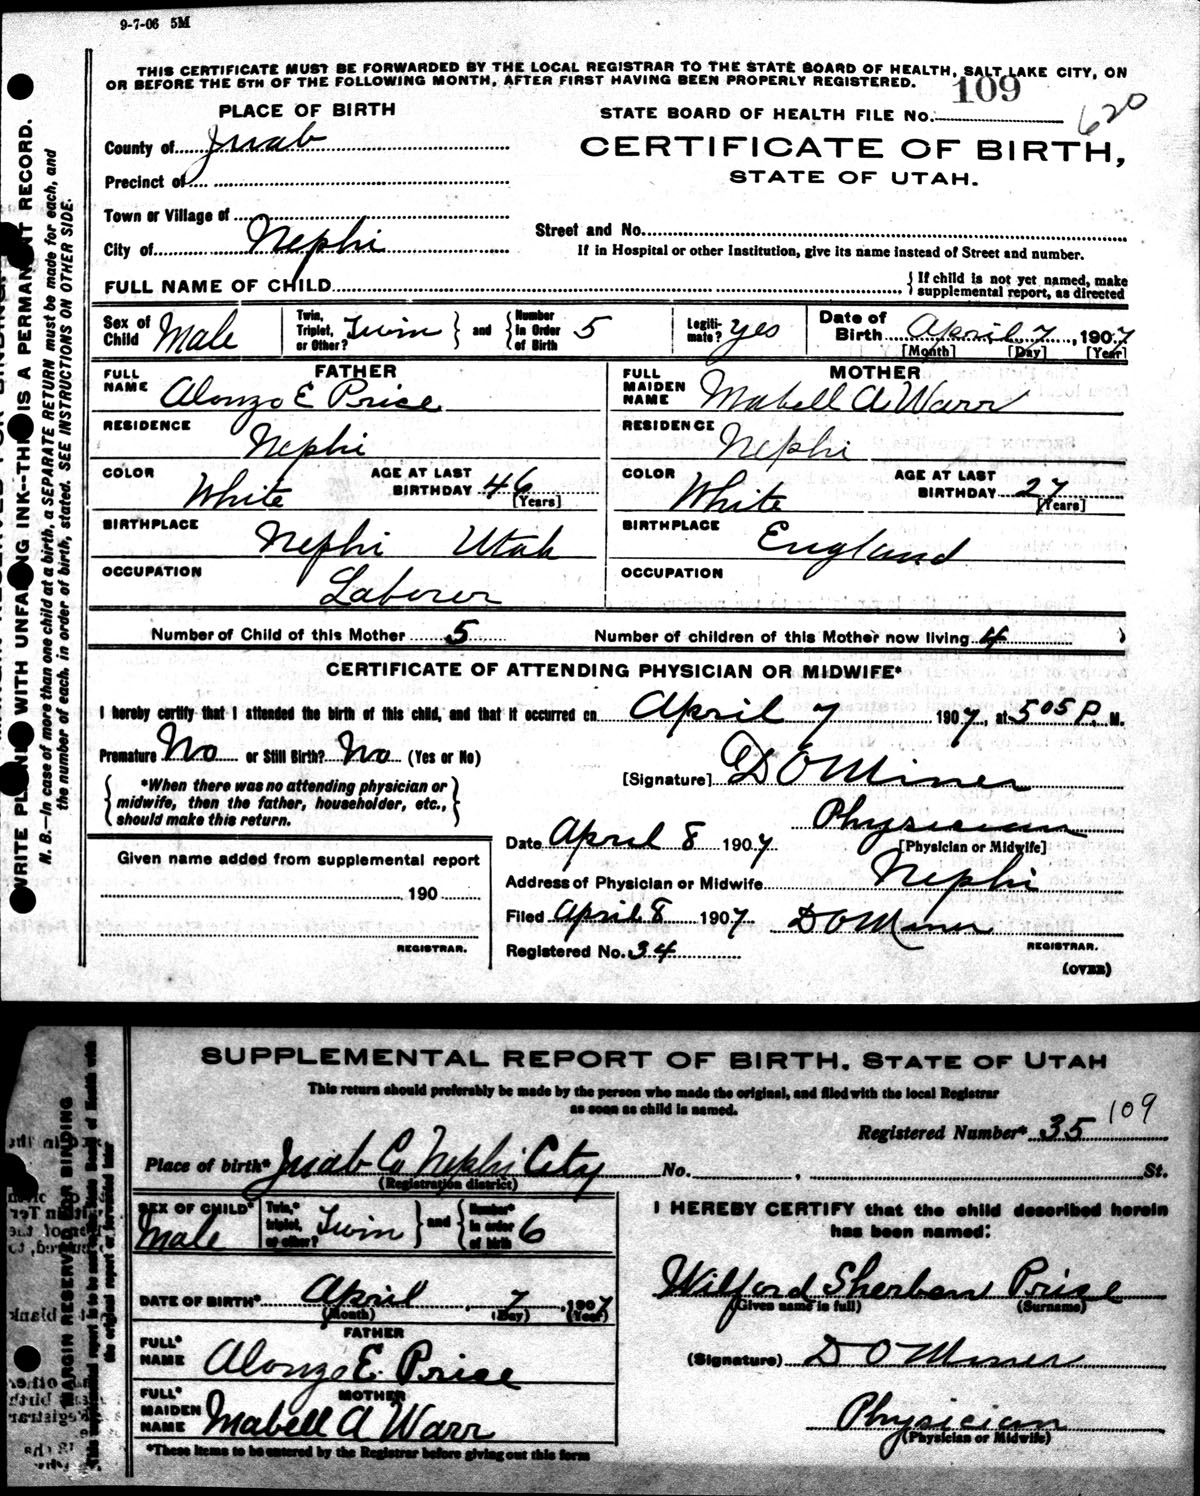 9-7-06 5M
THIS CERTIFICATE MUST BE FORWARDED BY THE LOCAL REGISTRAR TO THE STATE BOARD OF HEALTH, SALT LAKE CITY, ON
OR BEFORE THE 5TH OF THE FOLLOWING MONTH, AFTER FIRST HAVING BEEN PROPERLY REGISTERED.
109
620
PLACE OF BIRTH
STATE BOARD OF HEALTH FILE No.
County of Juab
CERTIFICATE OF BIRTH,
STATE OF UTAH.
Precinct of
Town or Village of
Street and No.
City of Nephi
If in Hospital or other Institution, give its name instead of Street and number.
FULL NAME OF CHILD
If child is not yet named, make supplemental report, as directed
Sex of Child Male Twin, Triplet, or Other? Twin and Number in Order of Birth 5 Legitimate? yes Date of Birth April 7, 1907 [Month] [Day] [Year]
FATHER MOTHER
FULL NAME Alonzo E Price FULL MAIDEN NAME Mabell A Warr
RESIDENCE Nephi RESIDENCE Nephi
COLOR White AGE AT LAST BIRTHDAY 46 [Years] COLOR White AGE AT LAST BIRTHDAY 27 [Years]
BIRTHPLACE Nephi Utah BIRTHPLACE England
OCCUPATION Laborer OCCUPATION
Number of Child of this Mother 5 Number of children of this Mother now living 4
CERTIFICATE OF ATTENDING PHYSICIAN OR MIDWIFE*
I hereby certify that I attended the birth of this child, and that it occurred on April 7 1907, at 5 05 P. M.
Premature No or Still Birth? No (Yes or No)
[Signature] D O Miner
*When there was no attending physician or
midwife, then the father, householder, etc.,
should make this return.
Physician
[Physician or Midwife]
Date April 8 1907
Given name added from supplemental report
190
REGISTRAR.
Address of Physician or Midwife Nephi
Filed April 8 1907 D O Miner
Registered No. 34 REGISTRAR.
(OVER)
WRITE PLAINLY WITH UNFADING INK--THIS IS A PERMANENT RECORD.
N. B.--In case of more than one child at a birth, a SEPARATE RETURN must be made for each, and
the number of each, in order of birth, stated. SEE INSTRUCTIONS ON OTHER SIDE.
SUPPLEMENTAL REPORT OF BIRTH, STATE OF UTAH
This return should preferably be made by the person who made the original, and filed with the local Registrar
as soon as child is named.
109
Registered Number* 35
Place of birth* Juab Co Nephi City No. , St.
(Registration district)
SEX OF CHILD* Male Twin,* triplet, or other? Twin and Number* in order of birth 6
I HEREBY CERTIFY that the child described herein
has been named:
DATE OF BIRTH* April 7, 1907
(Month) (Day) (Year)
Wilford Sherben Price
(Given name in full) (Surname)
FATHER
FULL* NAME Alonzo E. Price
(Signature) D O Miner
MOTHER
FULL* MAIDEN NAME Mabell A Warr
Physician
(Physician or Midwife)
*These items to be entered by the Registrar before giving out this form
MARGIN RESERVED FOR BINDING